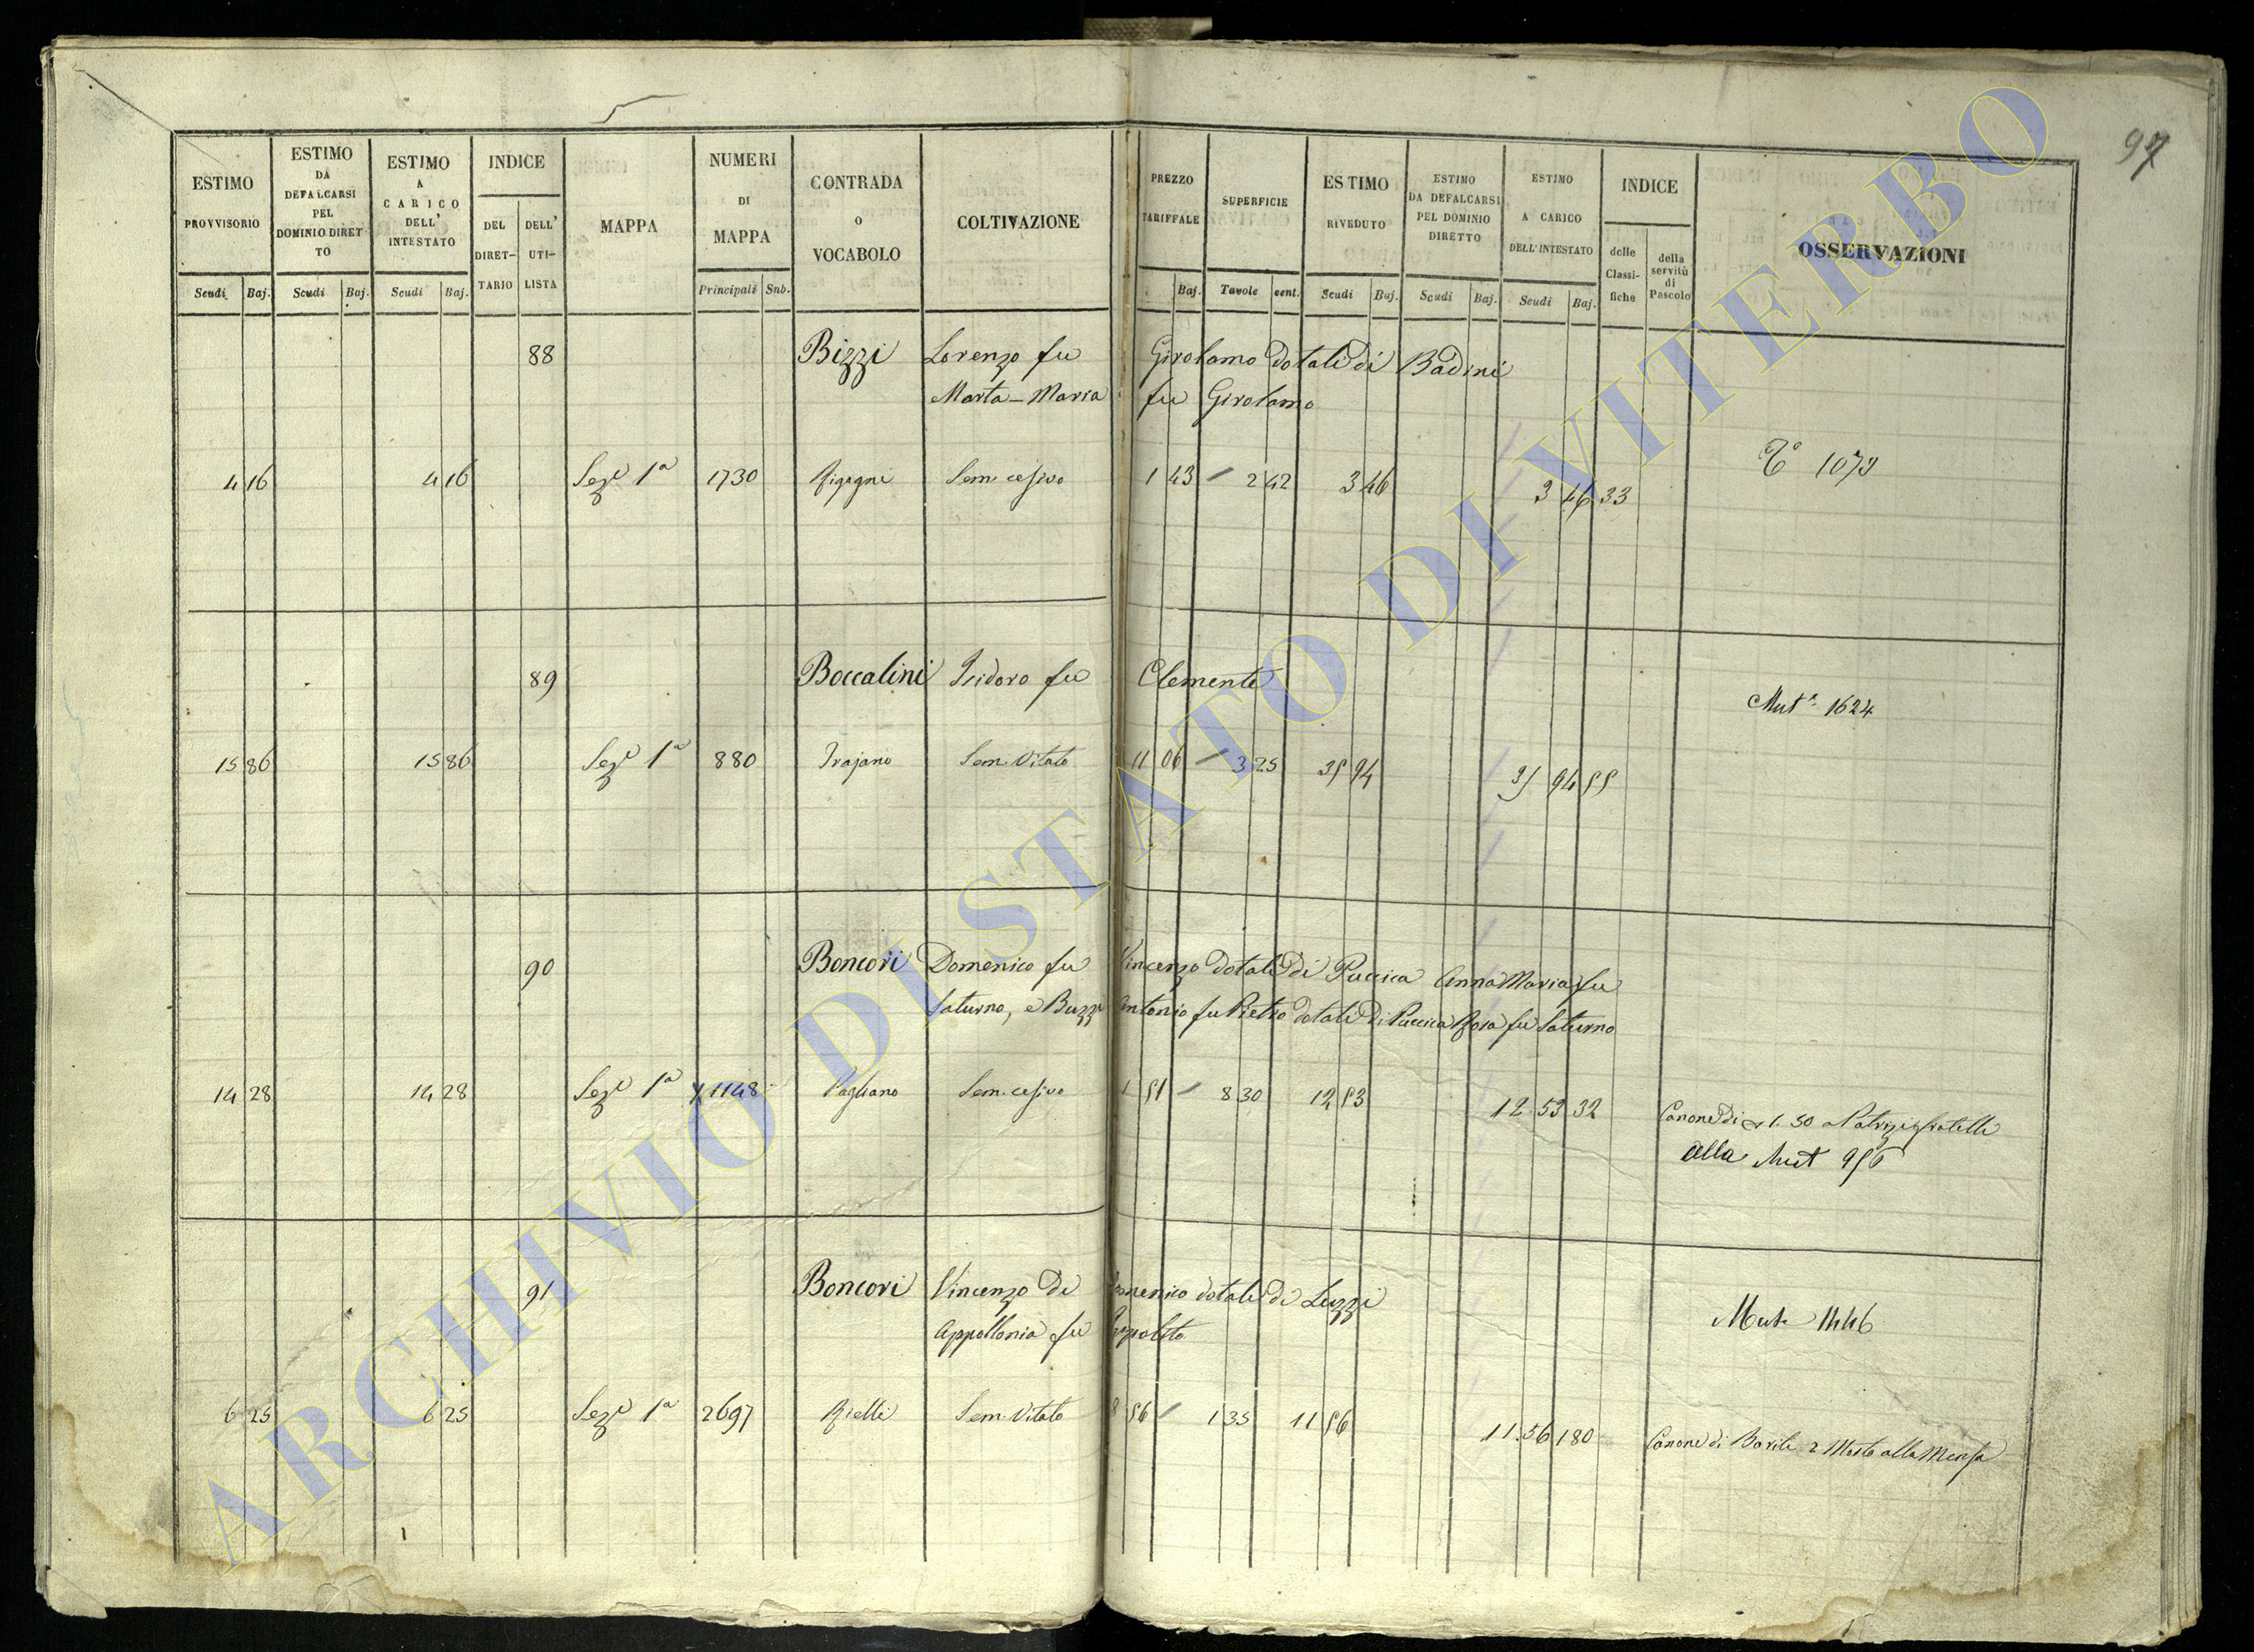 97
ESTIMO PROVVISORIO
ESTIMO DA DEFALCARSI PEL DOMINIO DIRETTO
ESTIMO A CARICO DELL' INTESTATO
INDICE
DEL DIRET-TARIO
DELL' UTI-LISTA
MAPPA
NUMERI DI MAPPA
CONTRADA O VOCABOLO
COLTIVAZIONE
PREZZO TARIFFALE
SUPERFICIE
ESTIMO RIVEDUTO
ESTIMO DA DEFALCARSI PEL DOMINIO DIRETTO
ESTIMO A CARICO DELL'INTESTATO
INDICE
delle Classi-fiche
della servitù di Pascolo
OSSERVAZIONI
Scudi Baj. Scudi Baj. Scudi Baj. Principali Snb. Baj. Tavole cent. Scudi Baj. Scudi Baj. Scudi Baj.
88 Bizzi Lorenzo fu Girolamo dotali di Badini
Marta-Maria fu Girolamo
4 16 4 16 Seze 1a 1730 Rigagni Sem. cesivo 1 43 2 42 3 46 3 46 33
89 Boccalini Isidoro fu Clemente
Mut. 1624
15 86 15 86 Seze 1a 880 Trajano Sem. Vitato 11 06 3 25 35 94 35 94 55
90 Boncori Domenico fu Vincenzo dotali di Puccica Anna Maria fu
Saturno, e Buzzi Antonio fu Pietro dotali di Puccica Rosa fu Saturno
14 28 14 28 Seze 1a 1148 Pagliano Sem. cesivo 1 51 8 30 12 53 12 53 32 Canone di 1.50 a Patrizi fratelli
alla Mut 956
91 Boncori Vincenzo di Domenico dotali di Luzzi
Appollonia fu Ippolito
Mut. 1446
6 25 6 25 Seze 1a 2697 Rielli Sem. Vitato 8 56 1 35 11 56 11.56 180 Canone di Barile 2 Mosto alla Mensa
ARCHIVIO DI STATO DI VITERBO